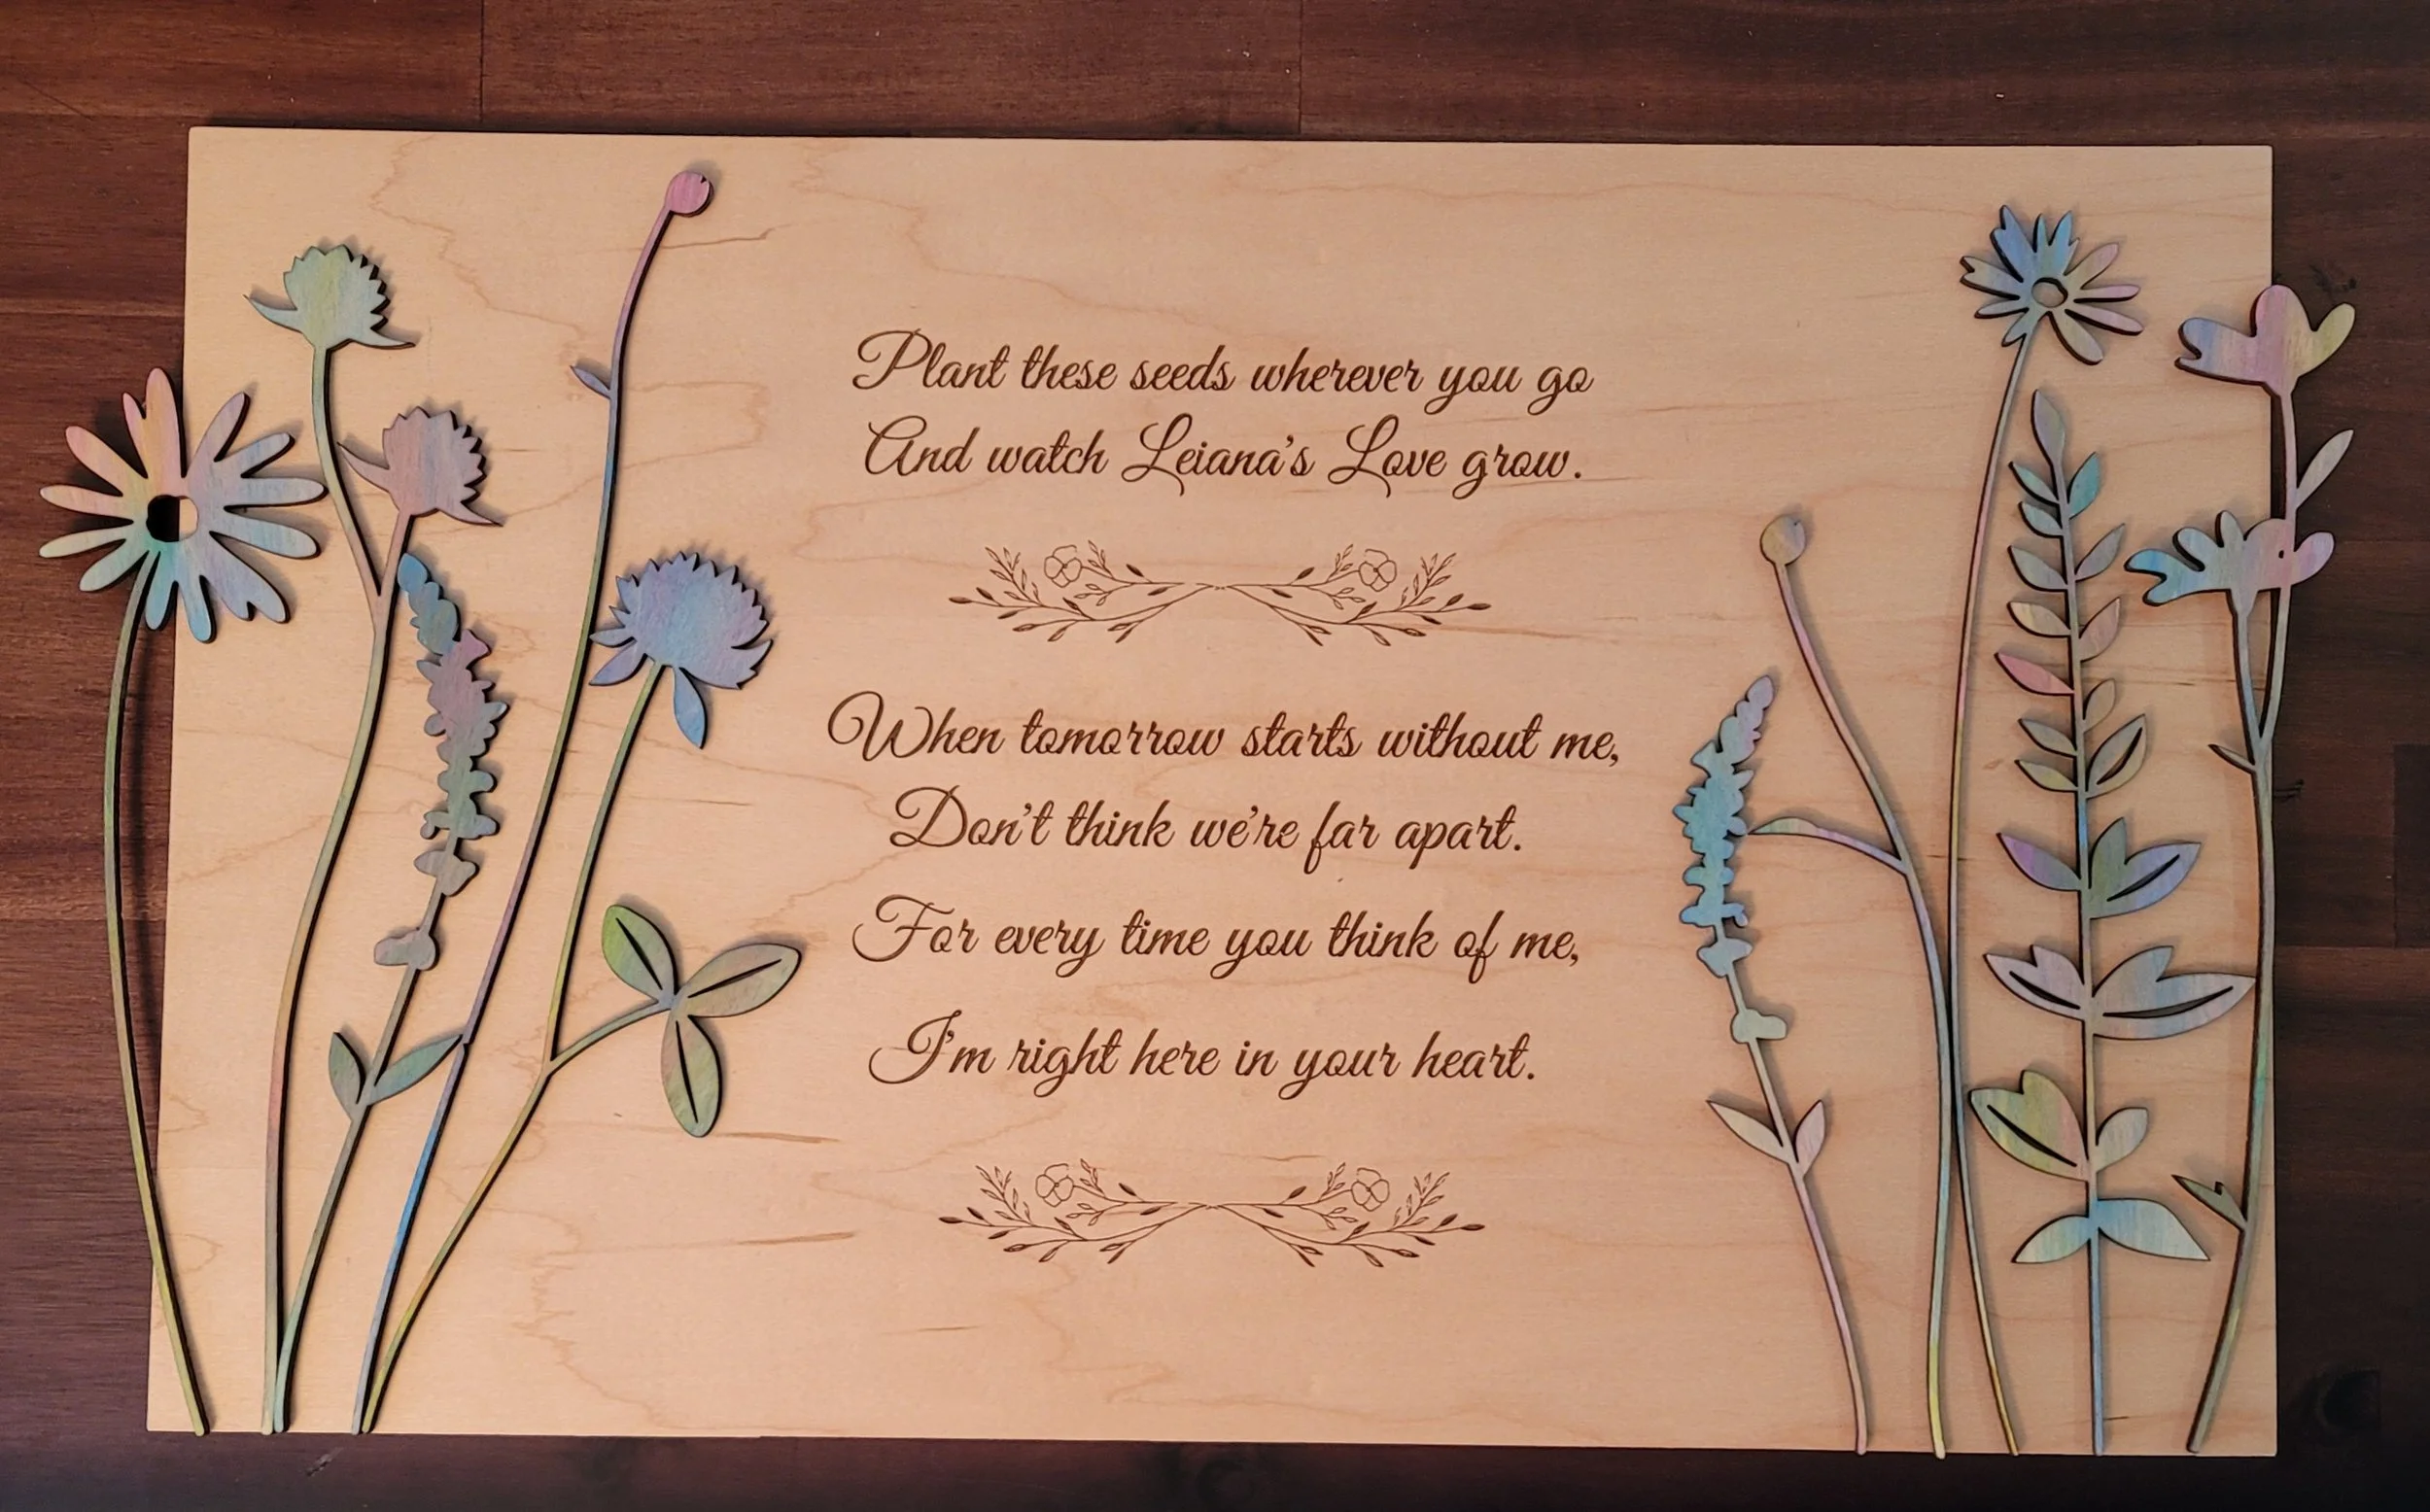 Plant these seeds wherever you go
And watch Leiana's Love grow.
When tomorrow starts without me,
Don't think we're far apart.
For every time you think of me,
I'm right here in your heart.